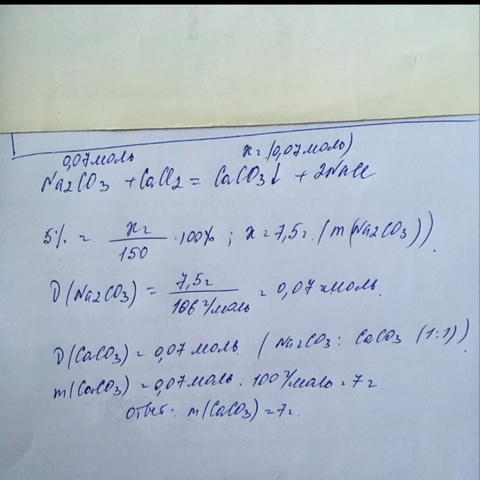 0,07 моль xг (0,07 моль)
Na2CO3 + CaCl2 = CaCO3↓ + 2NaCl
5% = xг/150 · 100% ; x = 7,5г. (m(Na2CO3)).
ν(Na2CO3) = 7,5г/106 г/моль = 0,07 моль.
ν(CaCO3) = 0,07 моль. (Na2CO3 : CaCO3 (1:1)).
m(CaCO3) = 0,07 моль · 100 г/моль = 7г.
ответ: m(CaCO3) = 7г.